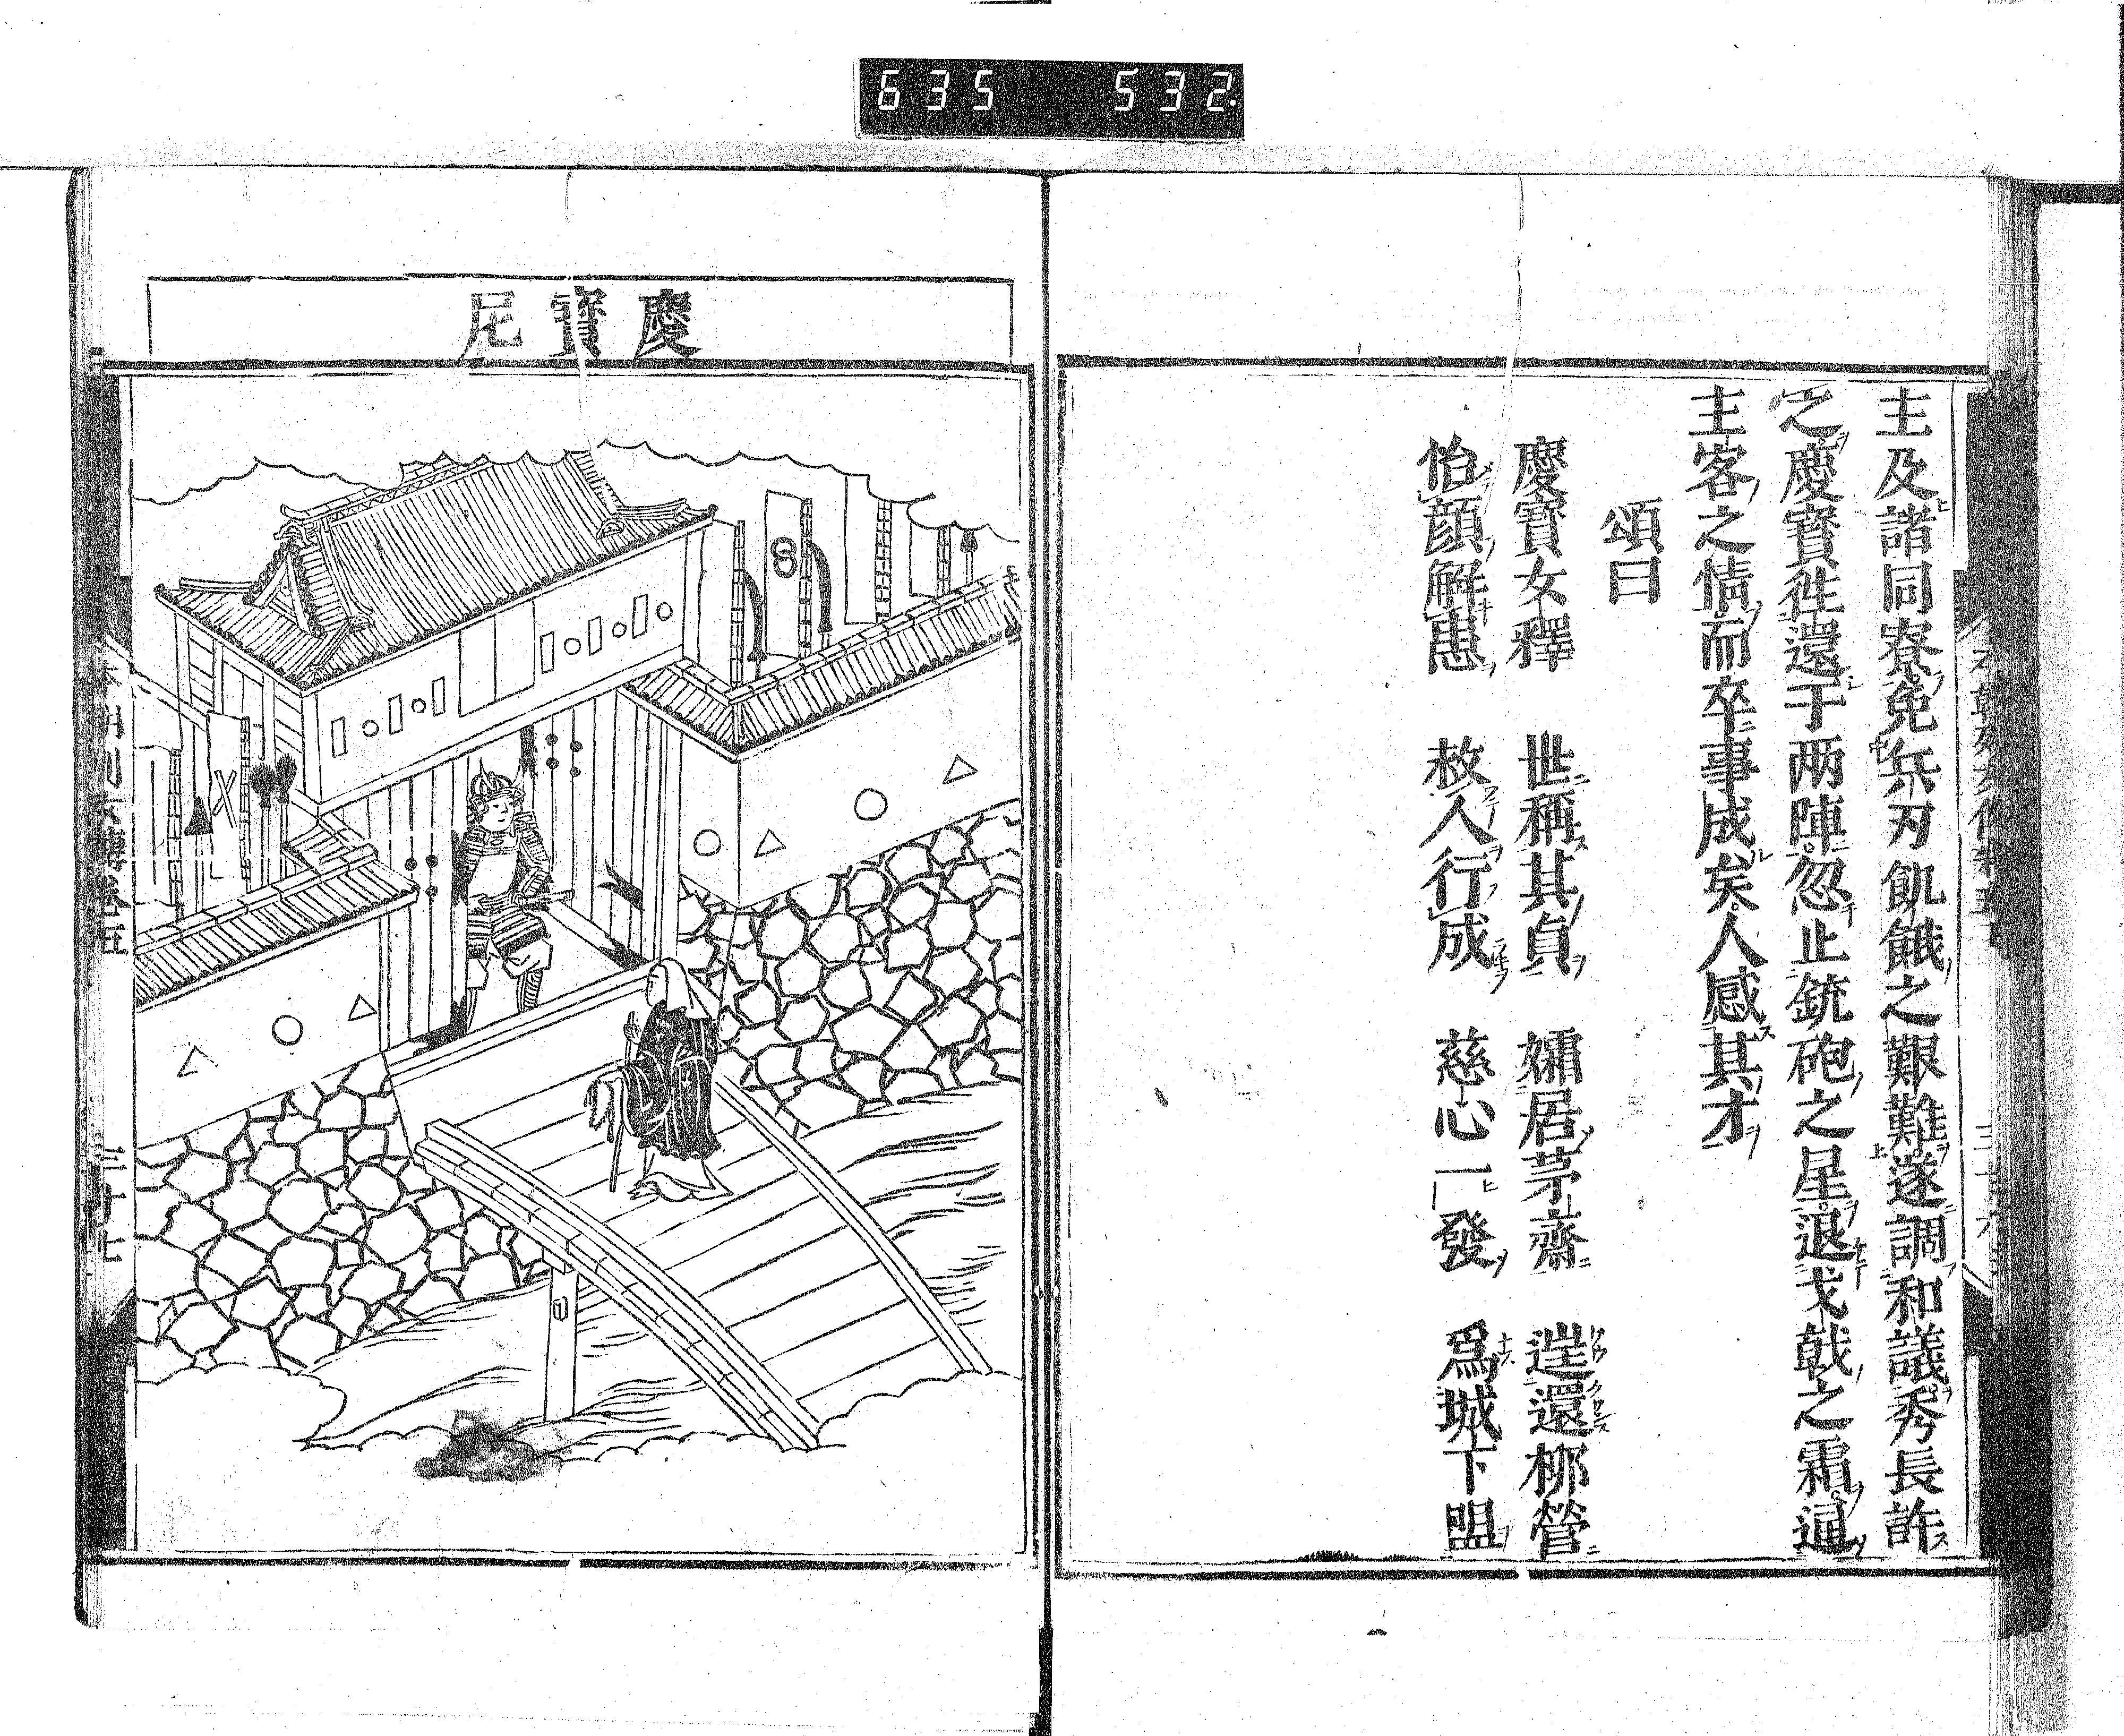 635 532.
主及諸同寮免兵刃飢餓之艱難遂調和議秀長許
之慶寶徃還于两陣忽止銃砲之星退戈戟之霜通
主客之情而卒事成矣人感其才
頌曰
慶寶女釋 世稱其貞 孀居茅齋 逞還柳營
怡顔解恚 救人行成 慈心一發 爲城下盟
慶寶尼
本朝列女傳卷五 三十七